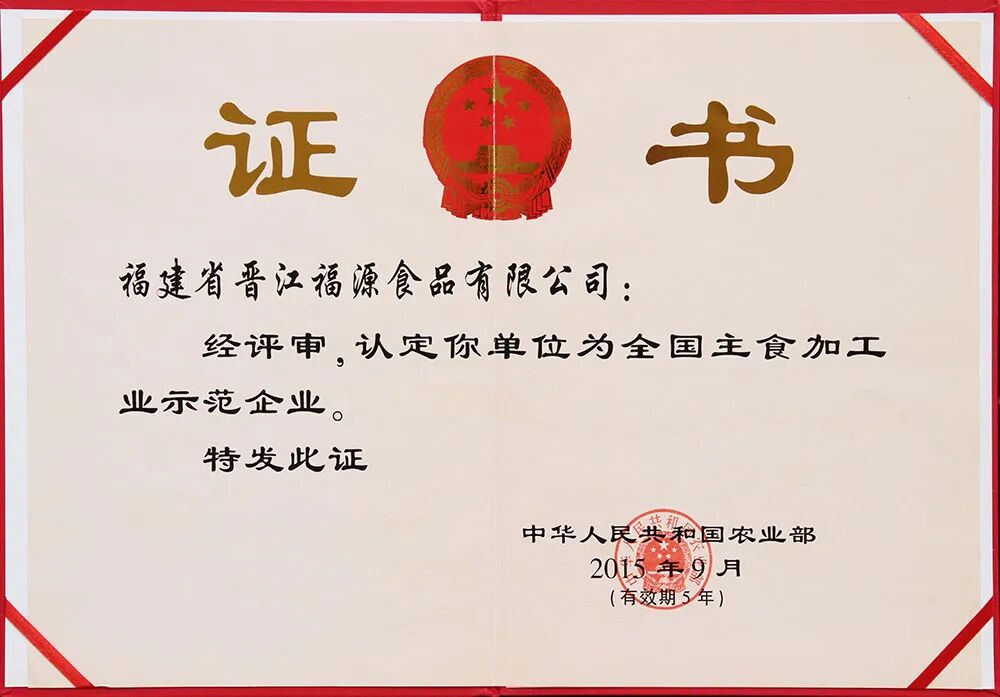 证书
福建省晋江福源食品有限公司：
经评审，认定你单位为全国主食加工
业示范企业。
特发此证
中华人民共和国农业部
2015 年 9 月
(有效期 5 年)
中华人民共和国农业部